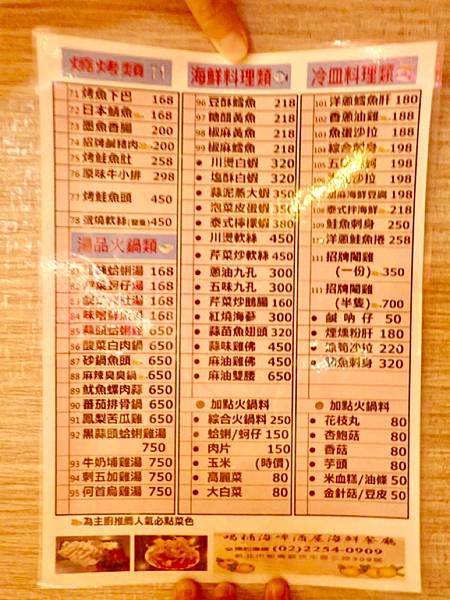 燒烤類
71 烤魚下巴 168
72 日本鯖魚 168
73 墨魚香腸 200
74 招牌鹹豬肉 200
75 烤鮭魚肚 258
76 原味牛小排 298
77 烤鮭魚頭 450
78 蛋燒軟絲 450
湯品火鍋類
蛤蜊湯 168
蚵仔湯 168
83 168
84 味噌鮮魚湯 168
85 蒜頭蛤蜊雞 650
86 酸菜白肉鍋 650
87 砂鍋魚頭 650
88 麻辣臭臭鍋 650
89 魷魚螺肉蒜 650
90 蕃茄排骨鍋 650
91 鳳梨苦瓜雞 650
92 黑蒜頭蛤蜊雞湯
750
93 牛奶埔雞湯 750
94 刺五加雞湯 750
95 何首烏雞湯 750
為主廚推薦人氣必點菜色
海鮮料理類
96 豆酥鱈魚 218
97 糖醋黃魚 218
98 椒麻黃魚 218
99 椒麻鱈魚 218
● 川燙白蝦 320
● 塩酥白蝦 320
● 蒜泥蒸大蝦 350
● 泡菜皮蛋蝦 350
● 泰式檸檬蝦 380
● 川燙軟絲 450
● 芹菜炒軟絲 450
● 蔥油九孔 300
● 五味九孔 300
● 芹菜炒鵝腸 160
● 紅燒海蔘 300
● 蒜苗魚翅頭 320
● 蒜味雞佛 450
● 麻油雞佛 450
● 麻油雙腰 650
● 加點火鍋料
● 綜合火鍋料 250
● 蛤蜊/蚵仔 150
● 肉片 150
● 玉米 (時價)
● 高麗菜 80
● 大白菜 80
冷血料理類
101 洋蔥鱈魚肝 180
102 香蔥油雞 188
103 魚蛋沙拉 188
104 綜合 198
105 198
沙拉 198
胡麻海鮮豆腐 198
108 泰式拌海鮮 218
109 鮭魚刺身 250
洋蔥鮭魚捲 258
111 招牌閹雞
(一份) 350
111 招牌閹雞
(半隻) 700
● 鹹蚋仔 50
● 煙燻粉肝 180
筍沙拉 220
魚刺身 320
● 加點火鍋料
● 花枝丸 80
● 杏鮑菇 80
● 香菇 80
● 芋頭 80
● 米血糕/油條 50
● 金針菇/豆皮 50
喝桶海啤酒屋海鮮餐廳
(02)2254-0909